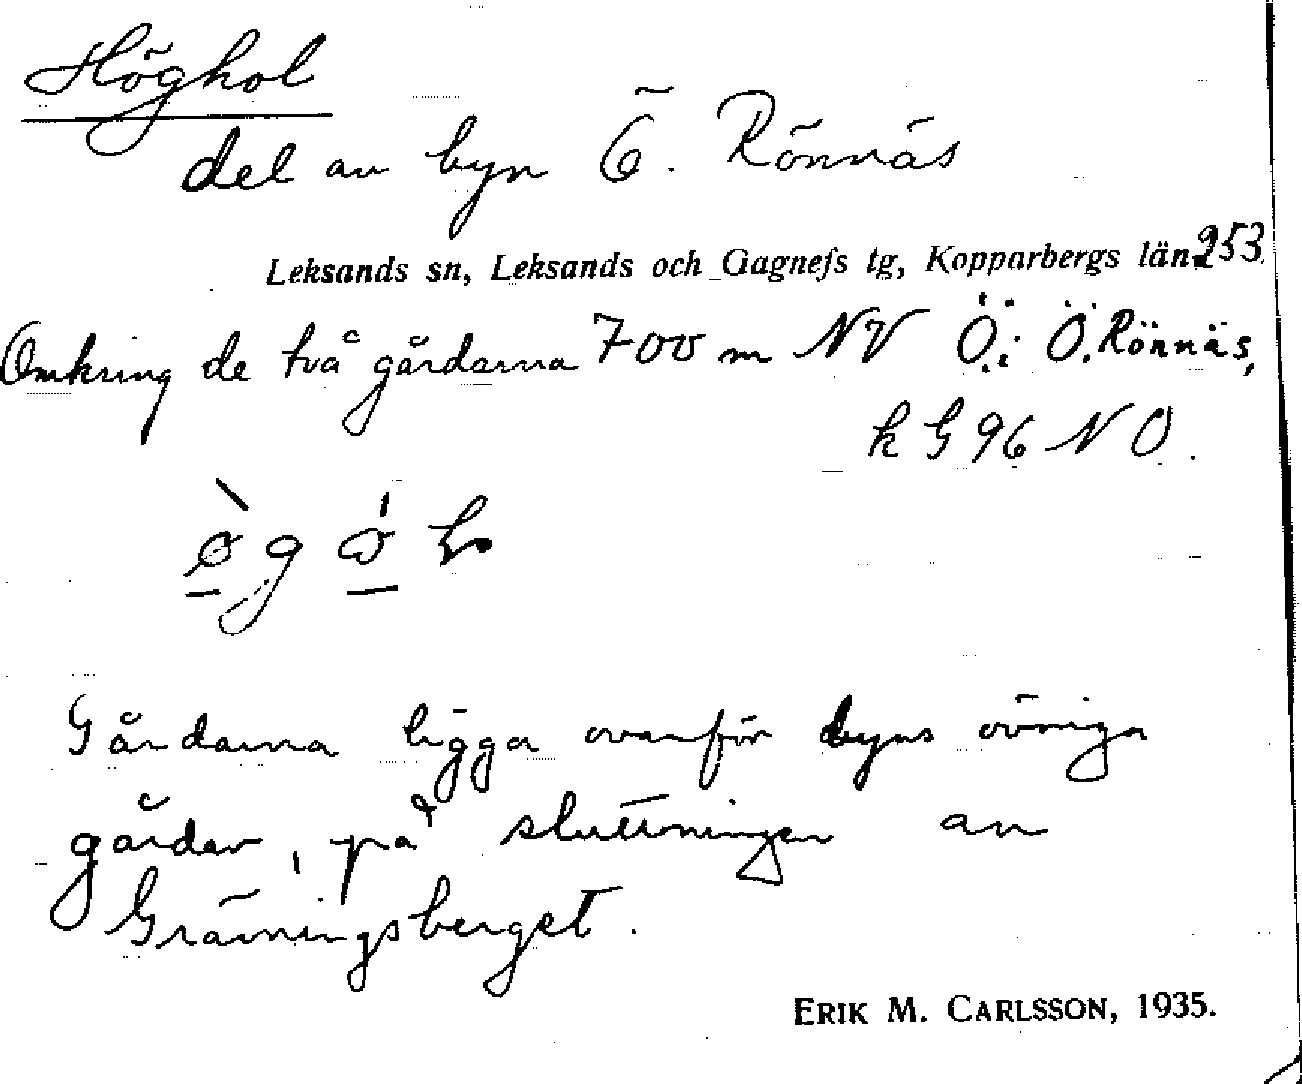 Höghol
del av byn Ö. Rönnäs
Leksands sn, Leksands och Gagnefs tg, Kopparbergs län 253.
Omkring de två gårdarna 700 m NV Ö. i Ö. Rönnäs,
k G 96 NO.
Gårdarna ligga ovanför byns övriga
gårdar, på sluttningen av
Gräiningsberget.
ERIK M. CARLSSON, 1935.